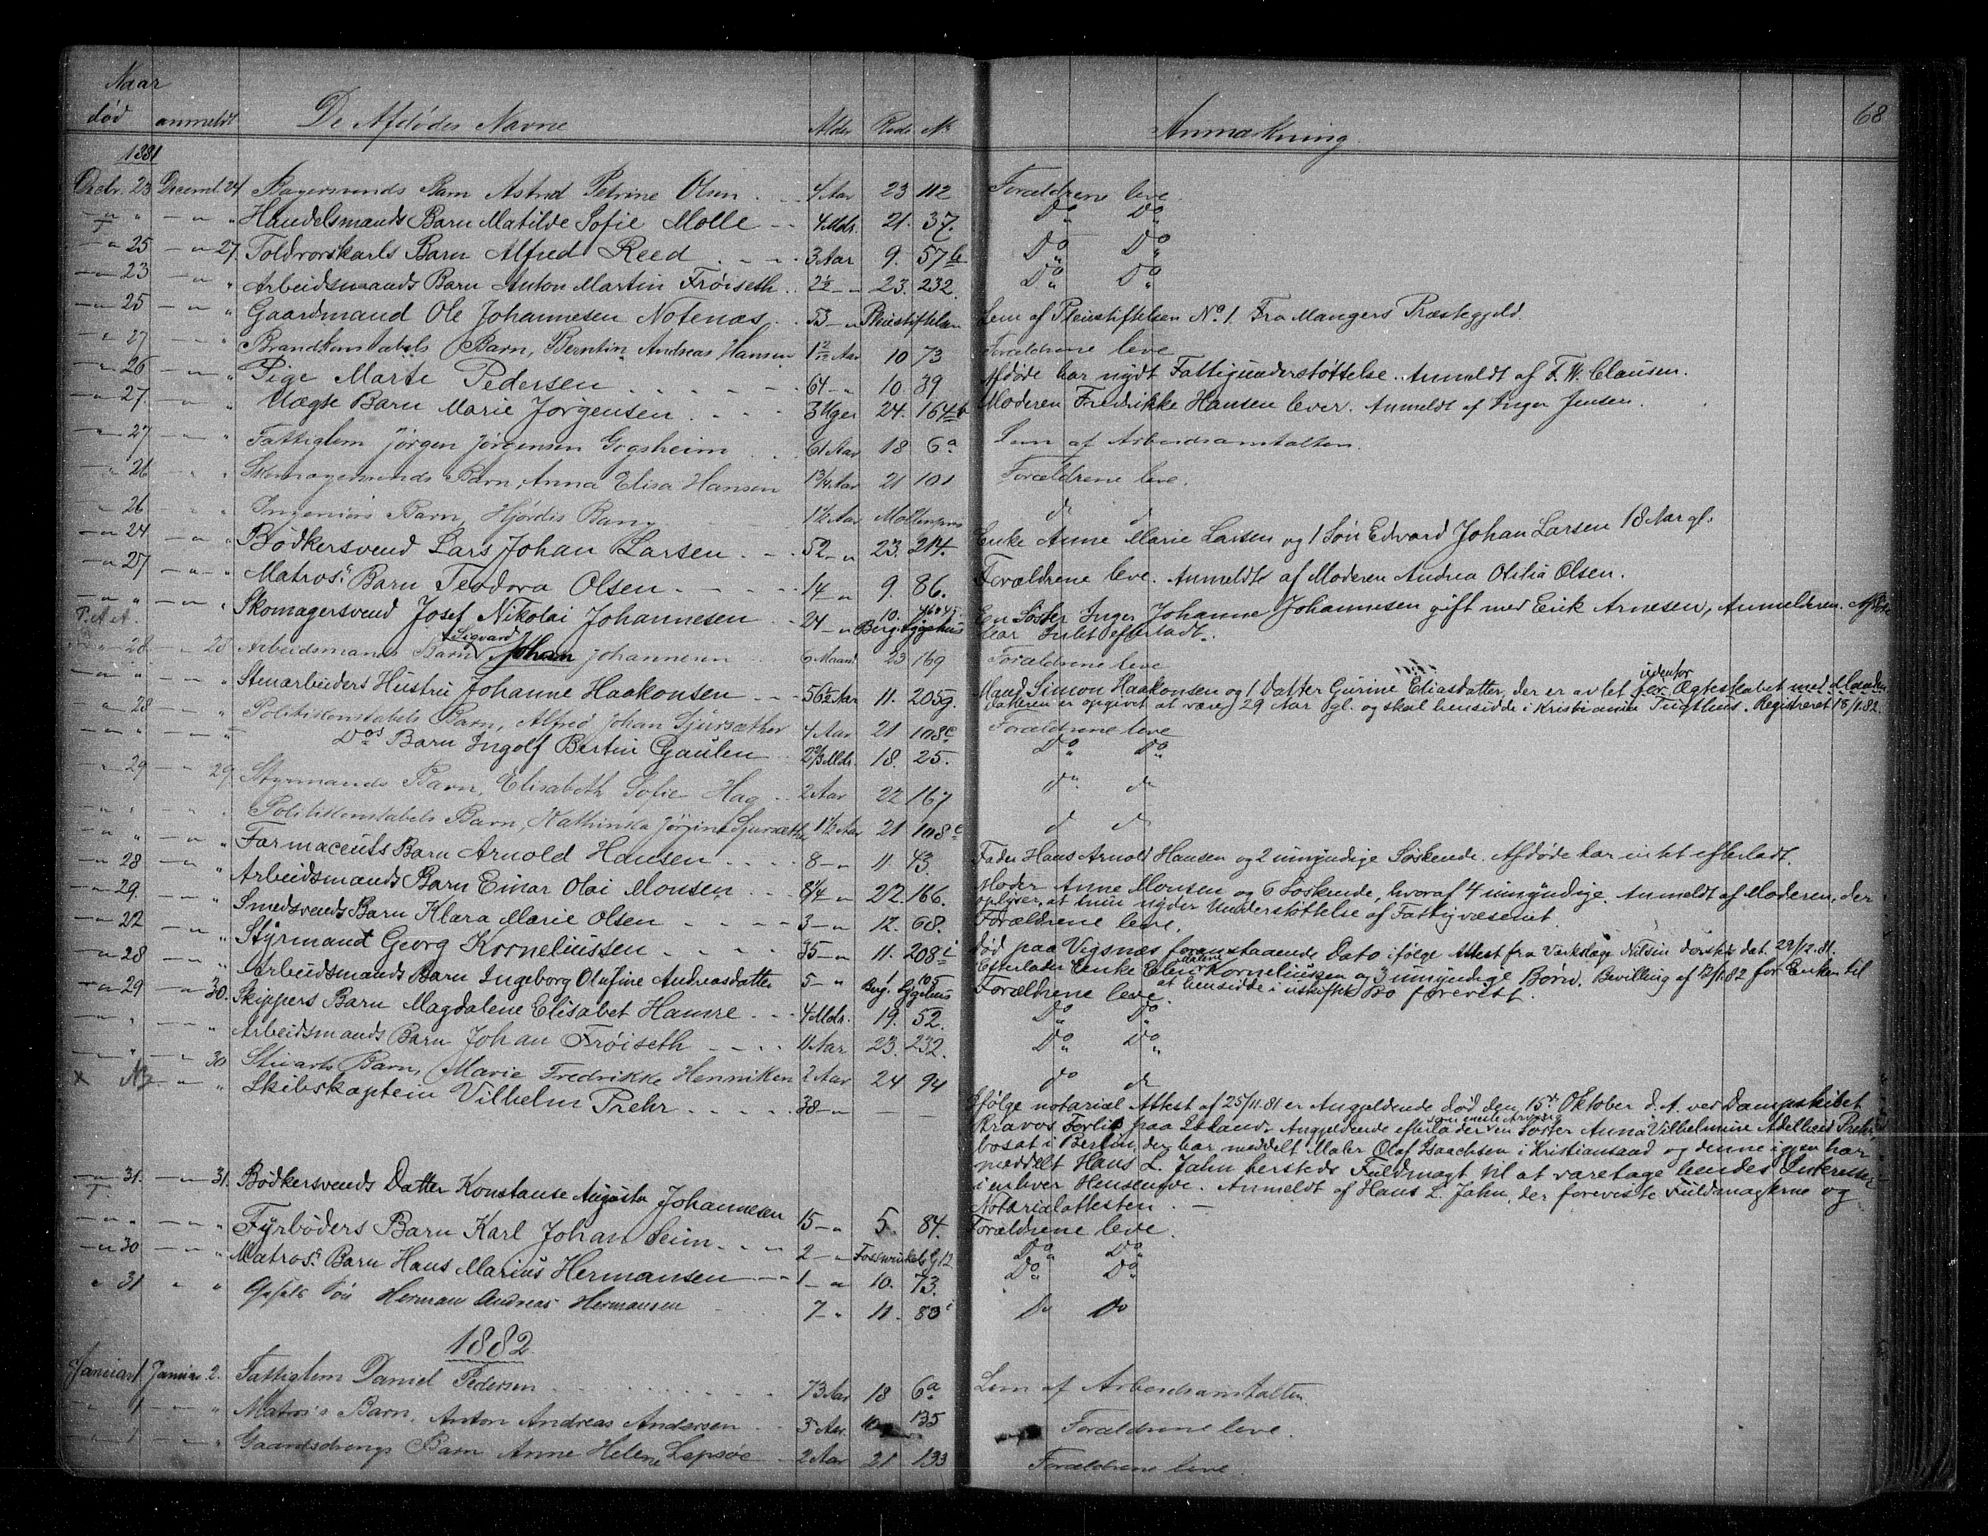 Naar
død anmeldt De Afdødes Navne Alder Rode № Anmærkning 68
1881
Decbr. 23 Decembr 24 Bagersvends Barn Astrid Petrine Olsen 4 Aar 23 112 Forældrene leve.
" " Handelsmands Barn Matilde Sofie Molle 4 Mdr. 21. 37. Do Do
25 27. Toldvorskarls Barn Alfred Reed 3 Aar 9. 57b Do Do
23 " Arbeidsmands Barn Anton Martin Frøiseth 2½ " 23. 232. Do Do
25 " Gaardmand Ole Johannesen Notenæs 53 " Pleiestiftelsen Lem af Pleiestiftelsen No 1. Fra Mangers Præstegjeld.
27 " Brandkonstabels Barn, Berntin Andreas Hansen 1 2/12 Aar 10 73 Forældrene leve
26 " Pige Marte Pedersen 64 " 10. 39 Afdøde har nydt Fattigunderstøttelse. Anmeldt af F. W. Clausen.
27. " Uægte Barn Marie Jørgensen 3 Uger 24. 164b Moderen Fredrikke Hansen lever. Anmeldt af Inger Jensen.
27 " Fattiglem Jørgen Jørgensen Gogsheim 61 Aar 18 6a Lem af Arbeidsanstalten.
26 " Skomagersvends Barn, Anna Elisa Hansen 1¾ Aar 21 101 Forældrene leve.
26 " Ingeniørs Barn, Hjørdis Bang 1½ Aar d d
24 " Bødkersvend Lars Johan Larsen 52 " 23. 214. Enke Anne Marie Larsen og 1 Søn Edvard Johan Larsen 18 Aar gl.
27 " Matros' Barn Teodora Olsen 14 " 9. 86. Forældrene leve. Anmeldt af Moderen Andrea Otilia Olsen.
" " Skomagersvend Josef Nikolai Johannesen 24 " 10. Berg. Sygehus En Søster Inger Johanne Johannesen gift med Erik Arnesen, Anmelderen. Afdøde
har Intet efterladt.
28 28 Arbeidsmands Barn Sigvard Johan Johannesen 6 Maaned 23 169 Forældrene leve
" " Stenarbeiders Hustru Johanne Haakonsen 56½ Aar 11. 205g. Mand Simon Haakonsen og 1 Datter Gurine Eliasdatter, der er avlet udenfor Ægteskabet med Manden.
Datteren er opgivet at være 29 Aar gl. og skal hensidde i Kristiania Tugthus. Registreret 18/1.82.
28 " Politikonstabels Barn, Alfred Johan Gjursæther 4 Aar 21 108c Forældrene leve
" " Dos Barn Ingolf Bertin Gaulen 2⅔ Mdr. 18. 25. Do Do
29 29. Styrmands Barn, Elisabeth Sofie Hag 2 Aar 22 167 do do
" " Politikonstabels Barn, Kathinka Jørgine Gjursæther 1½ Aar 21 108c d d
" " Farmaceuts Barn Arnold Hansen 8 " 11. 43. Fader Hans Arnold Hansen og 2 umyndige Søskende. Afdøde har intet efterladt.
28 " Arbeidsmands Barn Einar Olai Monsen 8¼ " 22. 166. Moder Anne Monsen og 6 Søskende, hvoraf 4 umyndige. Anmeldt af Moderen, der
oplyser, at hun nyder Understøttelse af Fattigvæsenet
29. " Smedsvends Barn Klara Marie Olsen 3 " 12. 68. Forældrene leve.
22 " Styrmand Georg Korneliussen 35 " 11. 208i Død paa Vigsnæs foranstaaende Dato ifølge Attest fra Verkslæge Nilsen dat. 29/12.81.
Efterlader Enke Elen Korneliussen og 3 umyndige Børn. Bevilling af 12/1.82 for Enken til
at hensidde i uskiftet Bo forevist.
28 " Arbeidsmands Barn Ingeborg Olufine Andreasdatter 5 " 1 105 Berg. Sygehus Forældrene leve.
29 30. Skippers Barn Magdalene Elisabet Hamre 4 Mdr. 19. 52. Do Do
" " Arbeidsmands Barn Johan Frøiseth 11 Aar 23. 232. Do Do
" 30 Stuarts Barn, Marie Fredrikke Henriksen 2 Aar 24 94 do d
x NB " Skibskaptein Vilhelm Prehr 38 " Ifølge notarial Attest af 25/11.81 er Angjeldende død den 15de Oktober d. A. ved Dampskibet
Forlis paa Angjeldende efterlader som eneste Arving en Søster Anna Vilhelmine Adelheid Prehr,
bosat i Berlin, der har meddelt Maler Olaf Isaachsen i Kristiansand og denne igjen har
meddelt Hans L. Jahn hersteds Fuldmagt til at varetage hendes Interesser
i enhver Henseende. Anmeldt af Hans L. Jahn, der foreviste Fuldmagterne og
Notarialattesten.
31. 31. Bødkersvends Datter Konstanse Augusta Johannesen 15 " 5. 84. Forældrene leve.
" " Fyrbøders Barn Karl Johan Seim 2 " Fosswinkels G 12 Do Do
30 " Matros' Barn Hans Marius Hermansen 1 " 10. 73. Do Do
31 " Søn Herman Andreas Hermansen 7 " 11. 83 Do Do
1882.
Januar 1 Januar 2. Fattiglem Daniel Pedersen 73 Aar 18 6a Lem af Arbeidsanstalten
1 " Matros's Barn, Anton Andreas Andersen 3 Aar 10 135 Forældrene leve.
1 " Gaardsdrengs Barn Anne Helene Lepsøe 2 Aar 21 133 Forældrene leve.